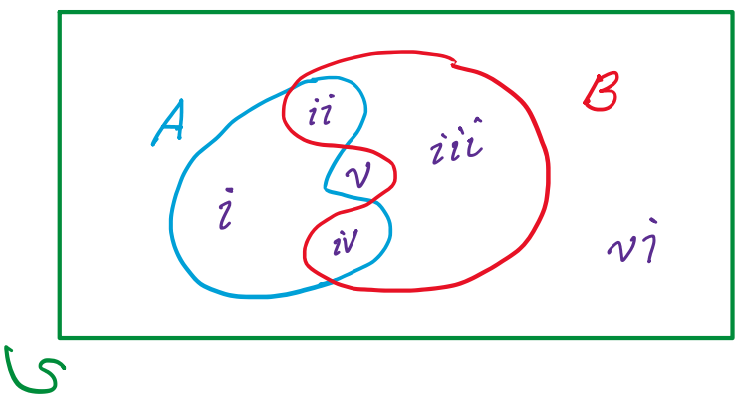 A
B
ii
iii
v
i
iv
vi
S